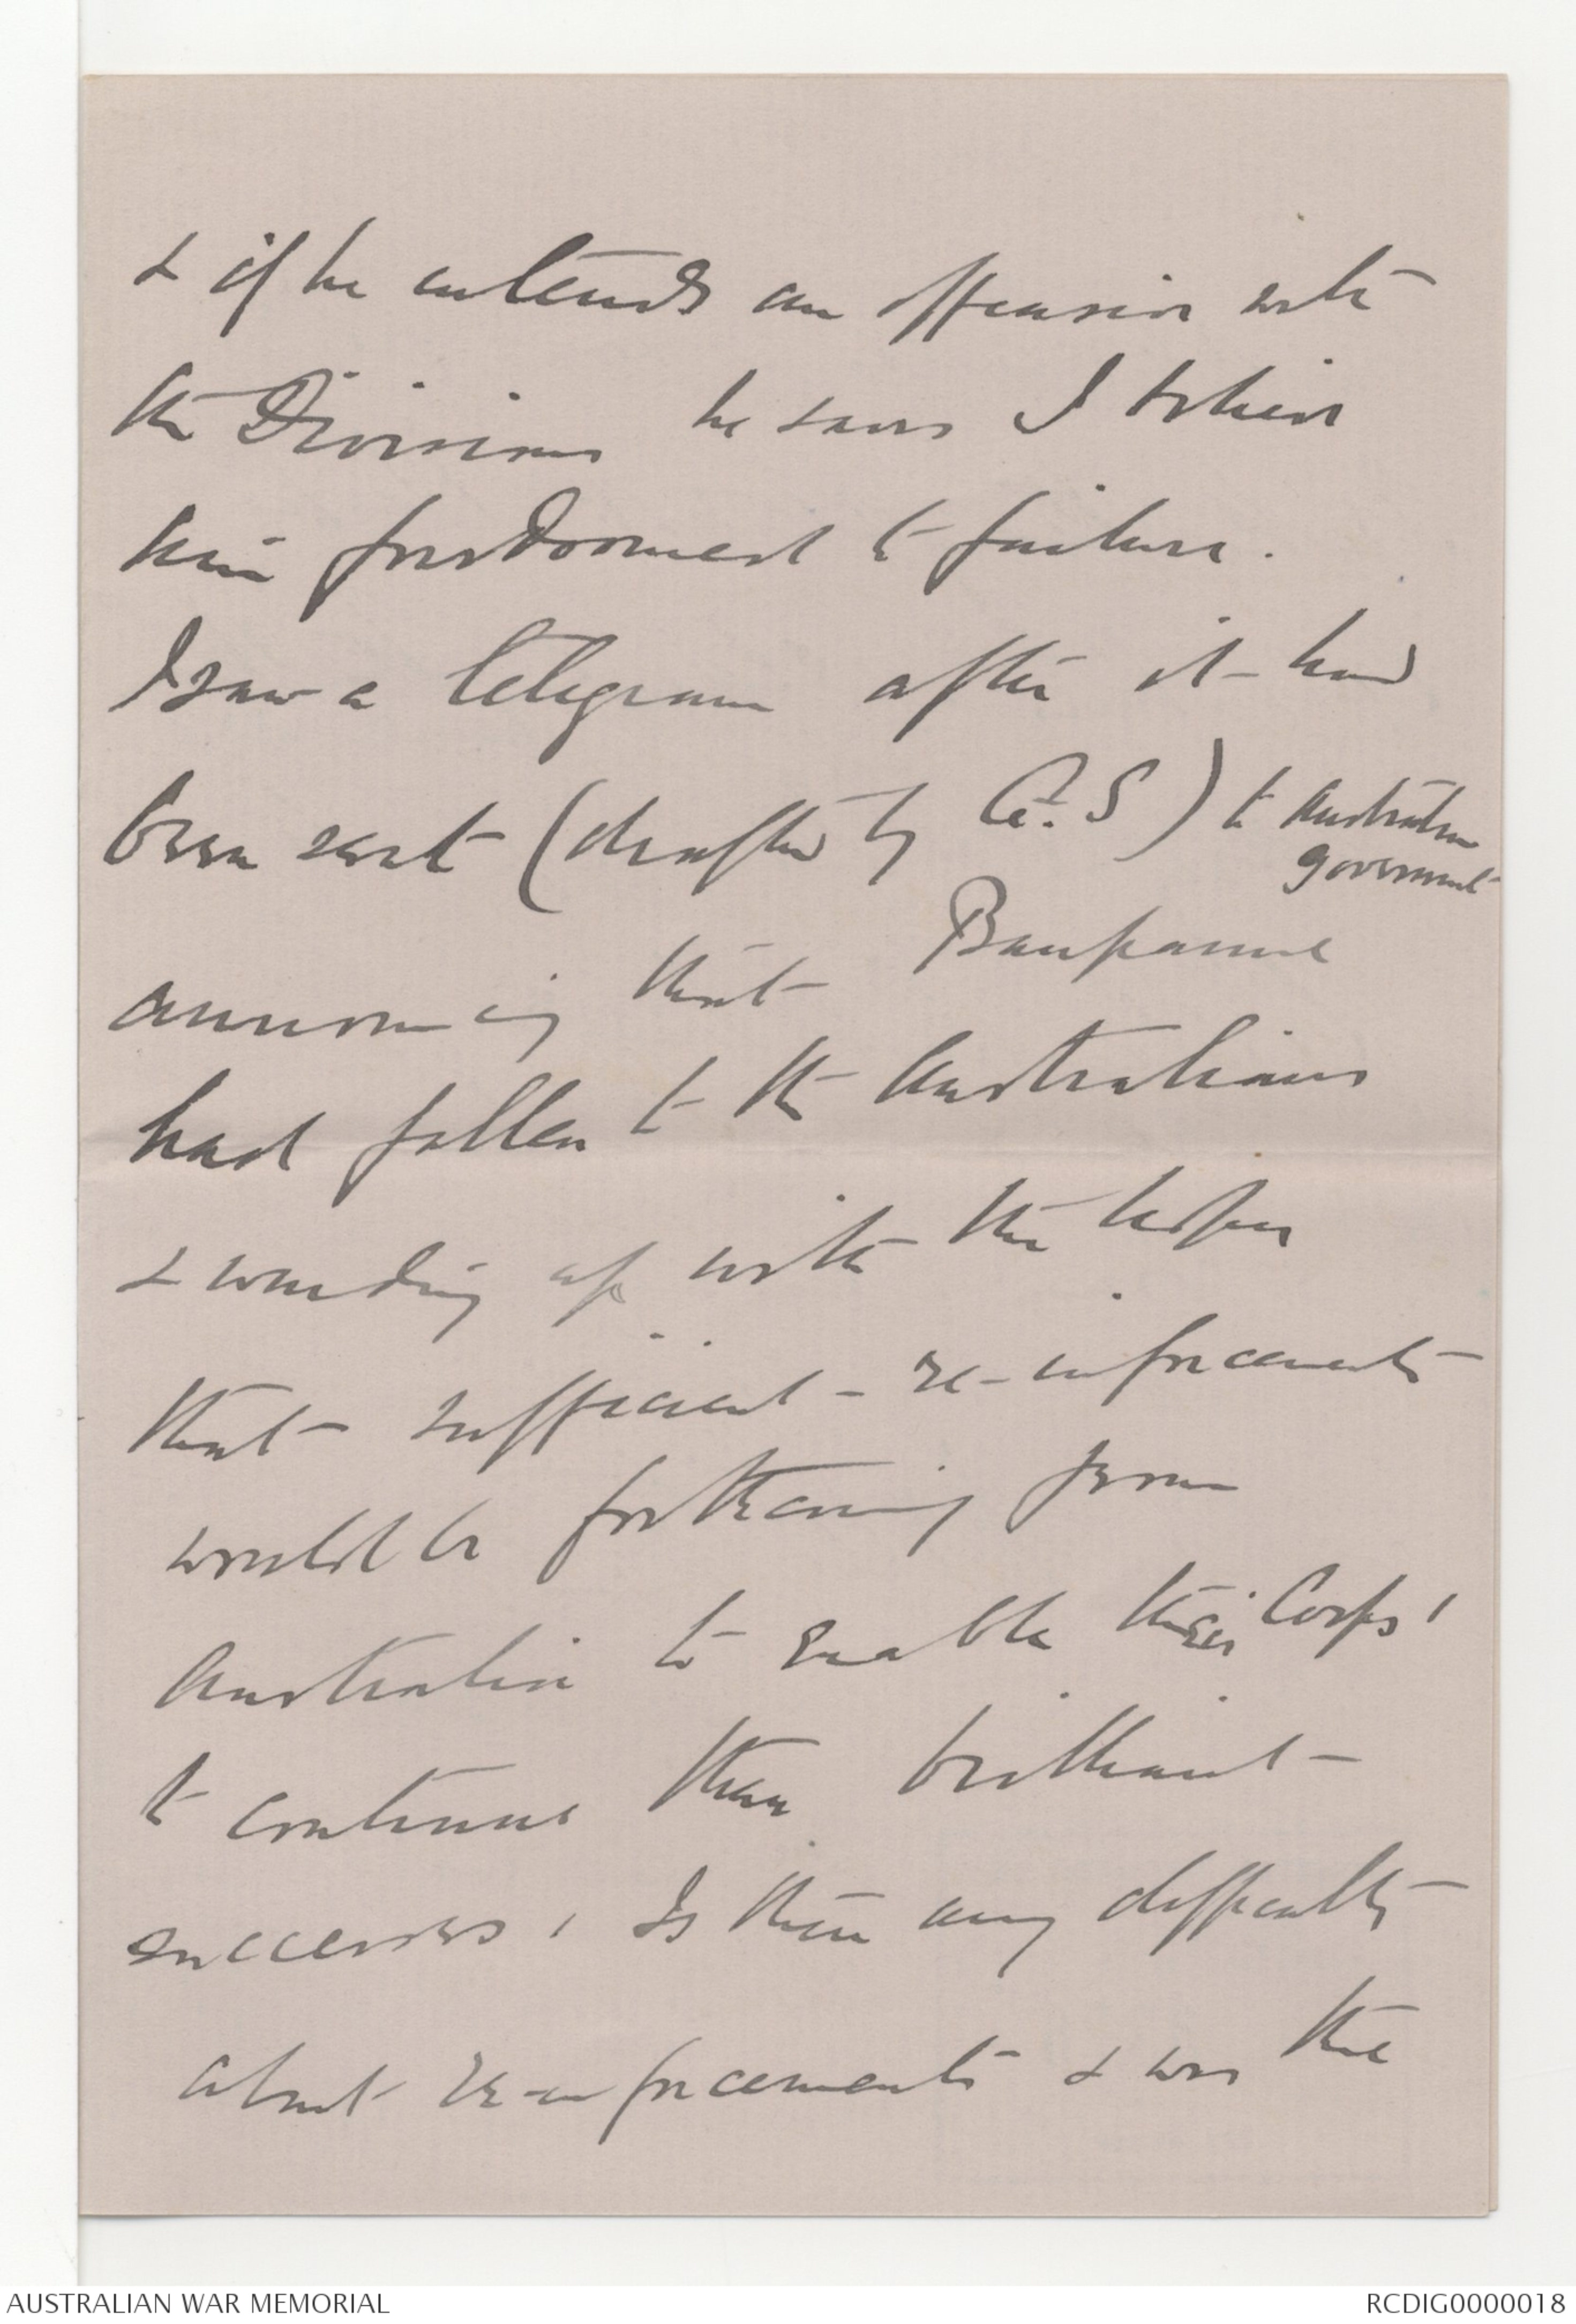 & if he intends an offensive with
the Divisions he saves I believe
him foredoomed to failure.
I saw a telegram after it had
been sent (drafted by G.S) to Australian
Government
announcing that Baupaume
had fallen to the Australians
& winding up with the hope
that sufficient re-inforcements
would be forthcoming from
Australia to enable their Corps'
to continue their brilliant
successes. Is there any difficulty
about re-inforcements & was the
AUSTRALIAN WAR MEMORIAL
RCDIG0000018